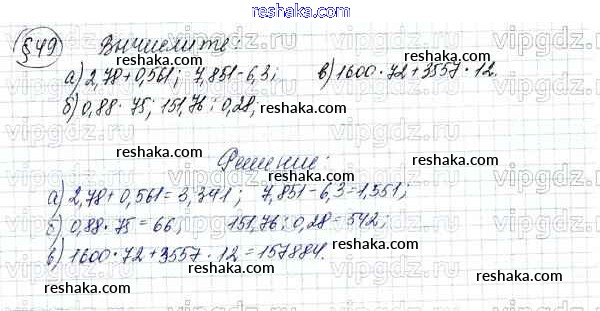 reshaka.com
849 Вычислите:
reshaka.com
а) 2,78+0,561; 7,851-6,3; в) 1600·72+3557·12.
reshaka.com reshaka.com
б) 0,88·75; 151,76:0,28;
reshaka.com
reshaka.com reshaka.com
Решение:
reshaka.com
а) 2,78+0,561=3,341; 7,851-6,3=1,551;
reshaka.com reshaka.com
б) 0,88·75=66; 151,76:0,28=542;
в) 1600·72+3557·12=157884.
reshaka.com reshaka.com
reshaka.com